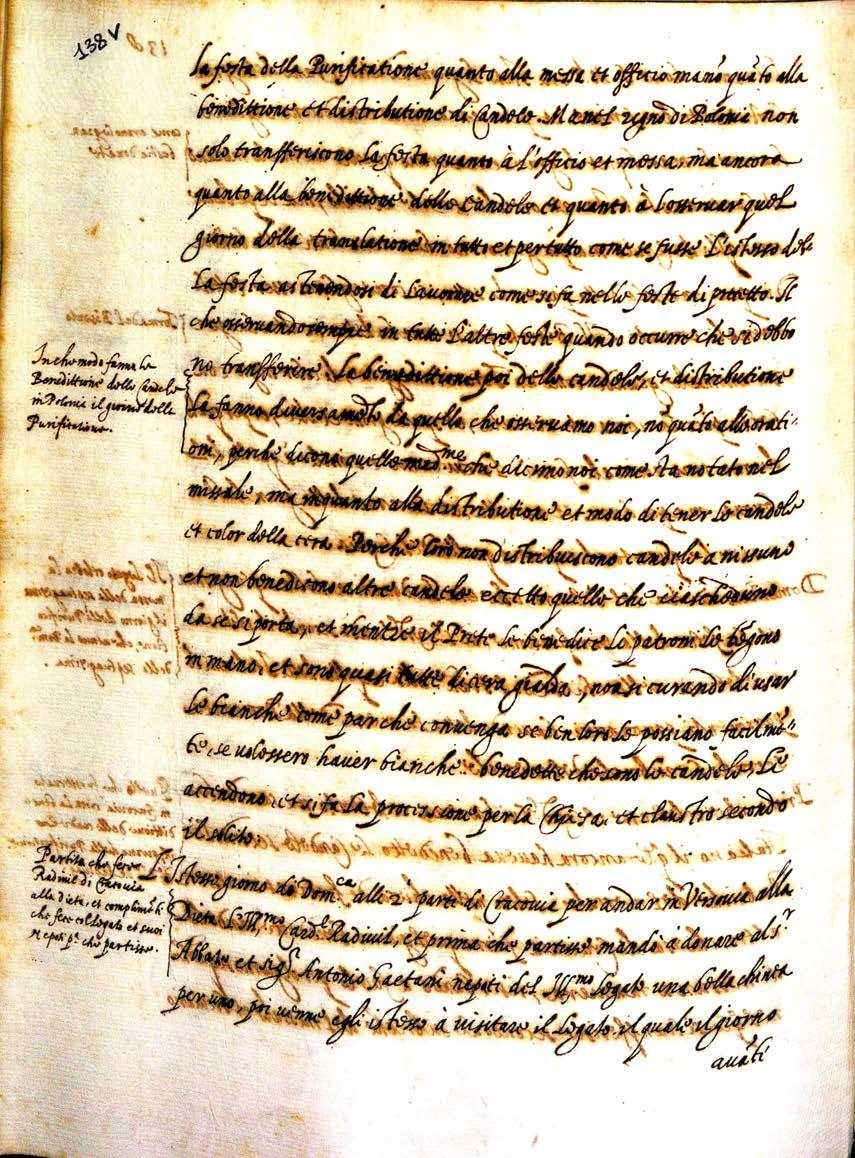 138v
la festa della Purificatione quanto alla messa et officio ma nõ quãto alla
benedittione et distributione di Candele. Ma nel regno di Polonia non
solo transferiscono la festa quanto à l'officio et messa, ma ancora
quanto alla benedittione delle Candele et quanto à l'osservar quel
giorno della translatione in tutto et per tutto come se fusse l'istesso del-
la festa astenendosi di lavorare come si fa nelle feste di precetto. Il
che osservando sempre in tutte l'altre feste quando occurre che si debbo
no transferire. La benedittione poi delle candele, et distributione
la fanno diversamẽte da quella che osservamo noi, nõ quãto alle orati-
oni, perche dicono quelle mad.me che dicimo noi come sta notato nel
missale, ma inquanto alla distributione et modo di tener le candele
et color della cera. Perche loro non distribuiscono candele a nissuno
et non benedicono altre candele eccetto quelle che ciascheduno
da se si porta, et mentre il Prete le benedice li patroni le tẽgono
in mano, et sono quasi tutte di cera gialda, non si curando di usar
le bianche come par che convenga se ben loro le possiano facilmẽ-
te, se volessero haver bianche. benedette che sono le candele, le
accendono, et si fa la processione per la Chiesa, et claustro secondo
il solito.
In che modo fanno la
Benedittione delle Candele
in Polonia il giorno della
Purificatione.
L'Istesso giorno de Dom.ca alli 2 parti di Cracovia per andar in Versovia alla
Dieta l'Ill.mo Card.l Radivil, et prima che partisse mandò à donare al s.r
Abbate et sig.r Antonio Gaetani nepoti del Ill.mo Legato una bella chinea
per uno, poi venne egli istesso à visitare il Legato, il quale il giorno
avãti
Partita che fece
Radivil di Cracovia
alla dieta, et complimẽti
che fece col legato et suoi
nepoti p.a che partisse.